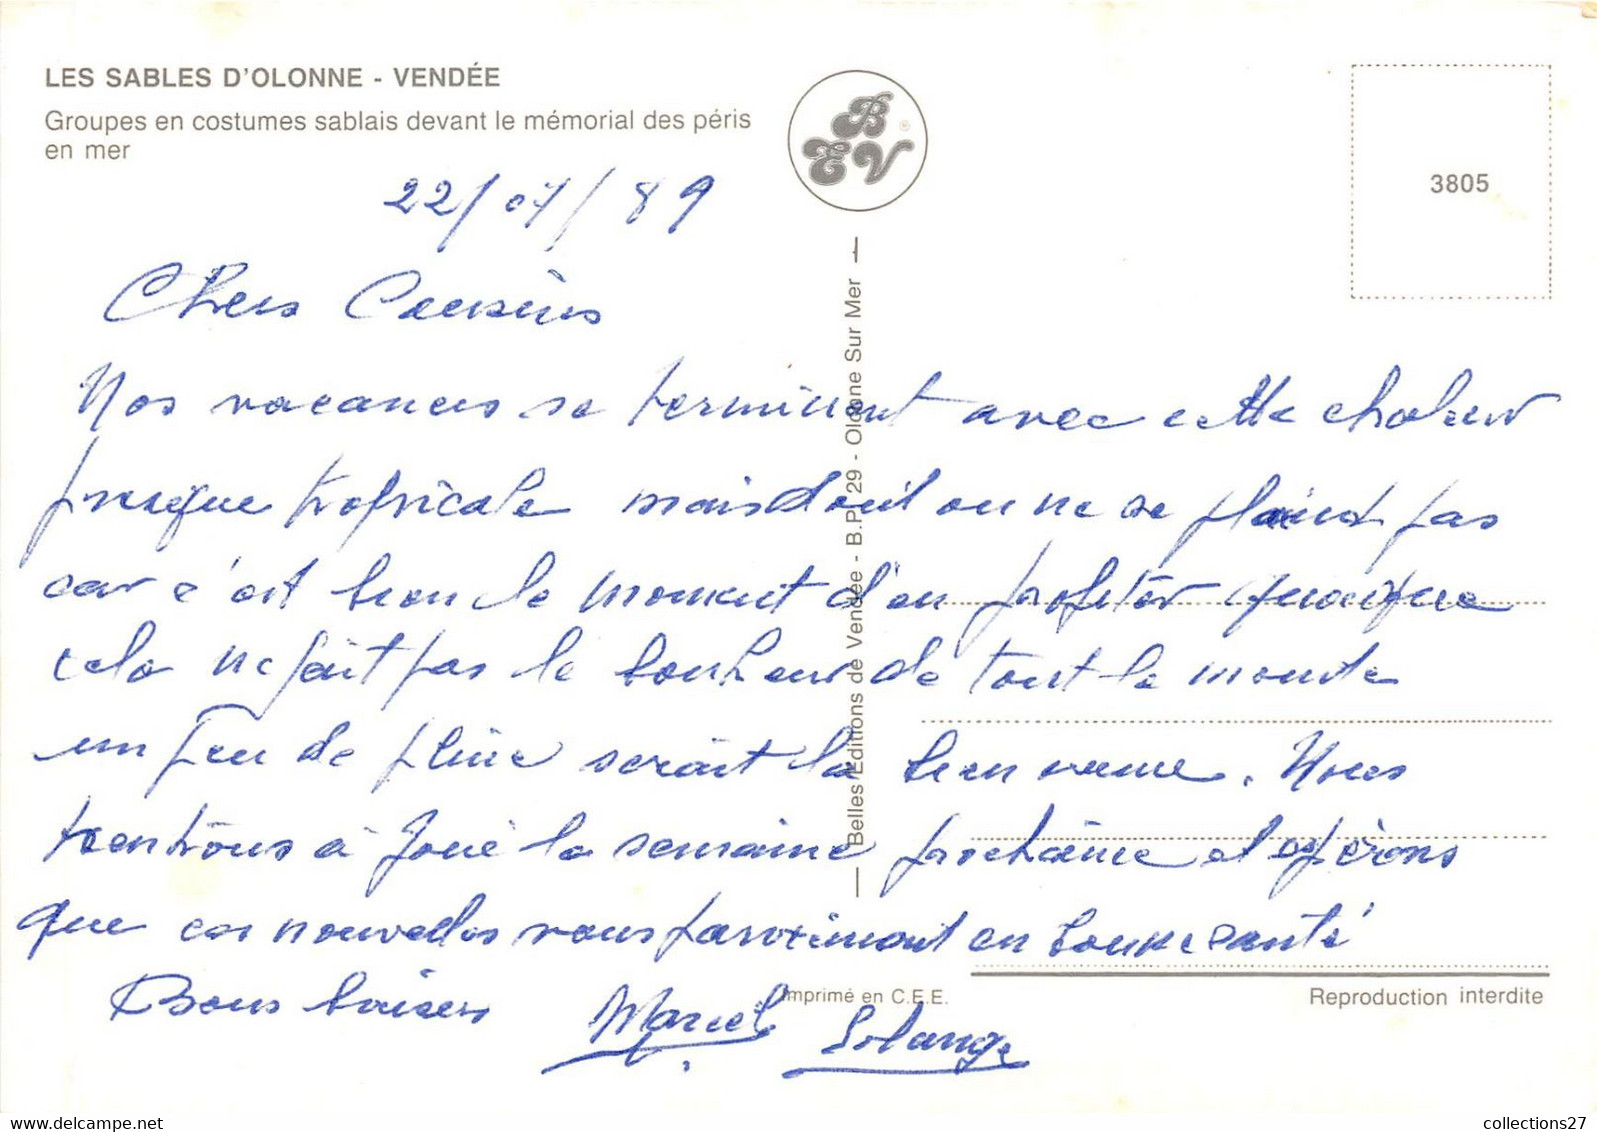 LES SABLES D'OLONNE - VENDÉE
Groupes en costumes sablais devant le mémorial des péris
en mer
B
E V
®
3805
22/07/89
Chers Cousins
Nos vacances se terminent avec cette chaleur
presque tropicale mais on ne se plaint pas
car c'est bien le moment d'en profiter quoique
cela ne fait pas le bonheur de tout le monde
un peu de pluie serait la bienvenue. Nous
rentrons à Joué la semaine prochaine et espérons
que ces nouvelles vous parviennent en bonne santé
Bons baisers Marcel Solange
Belles Editions de Vendée - B.P. 29 - Olonne Sur Mer
Imprimé en C.E.E.
Reproduction interdite
collections27